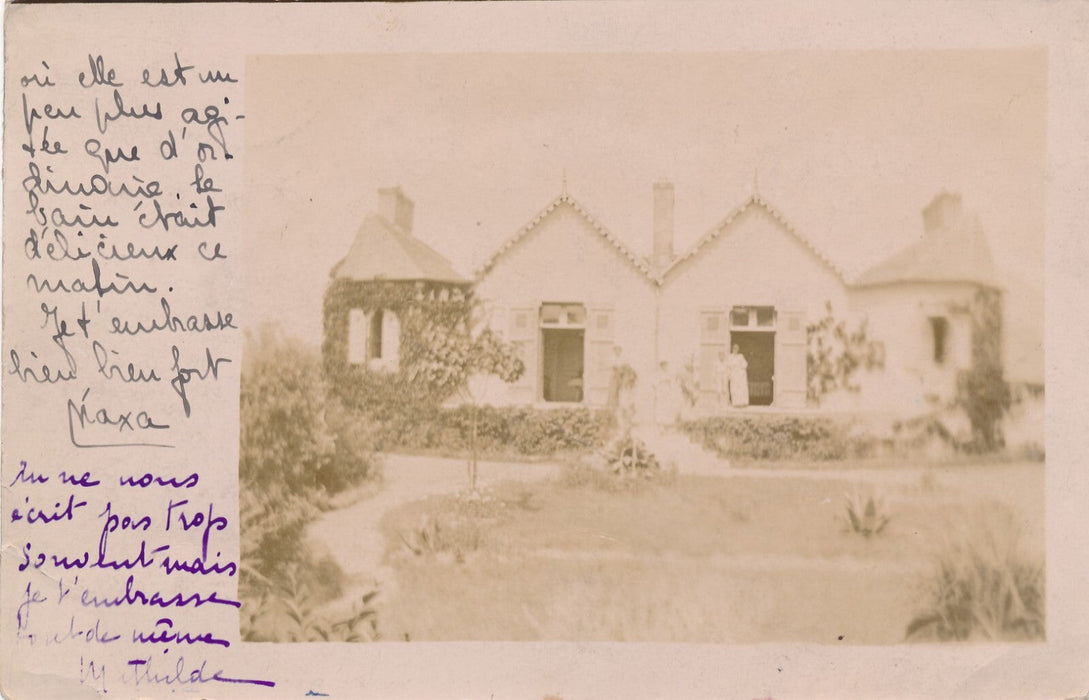 où elle est un
peu plus agi-
tée que d'or-
dinaire. Le
bain était
délicieux ce
matin.
Je t'embrasse
bien bien fort
Maxa
Tu ne nous
écrit pas trop
souvent mais
je t'embrasse
tout de même
Mathilde